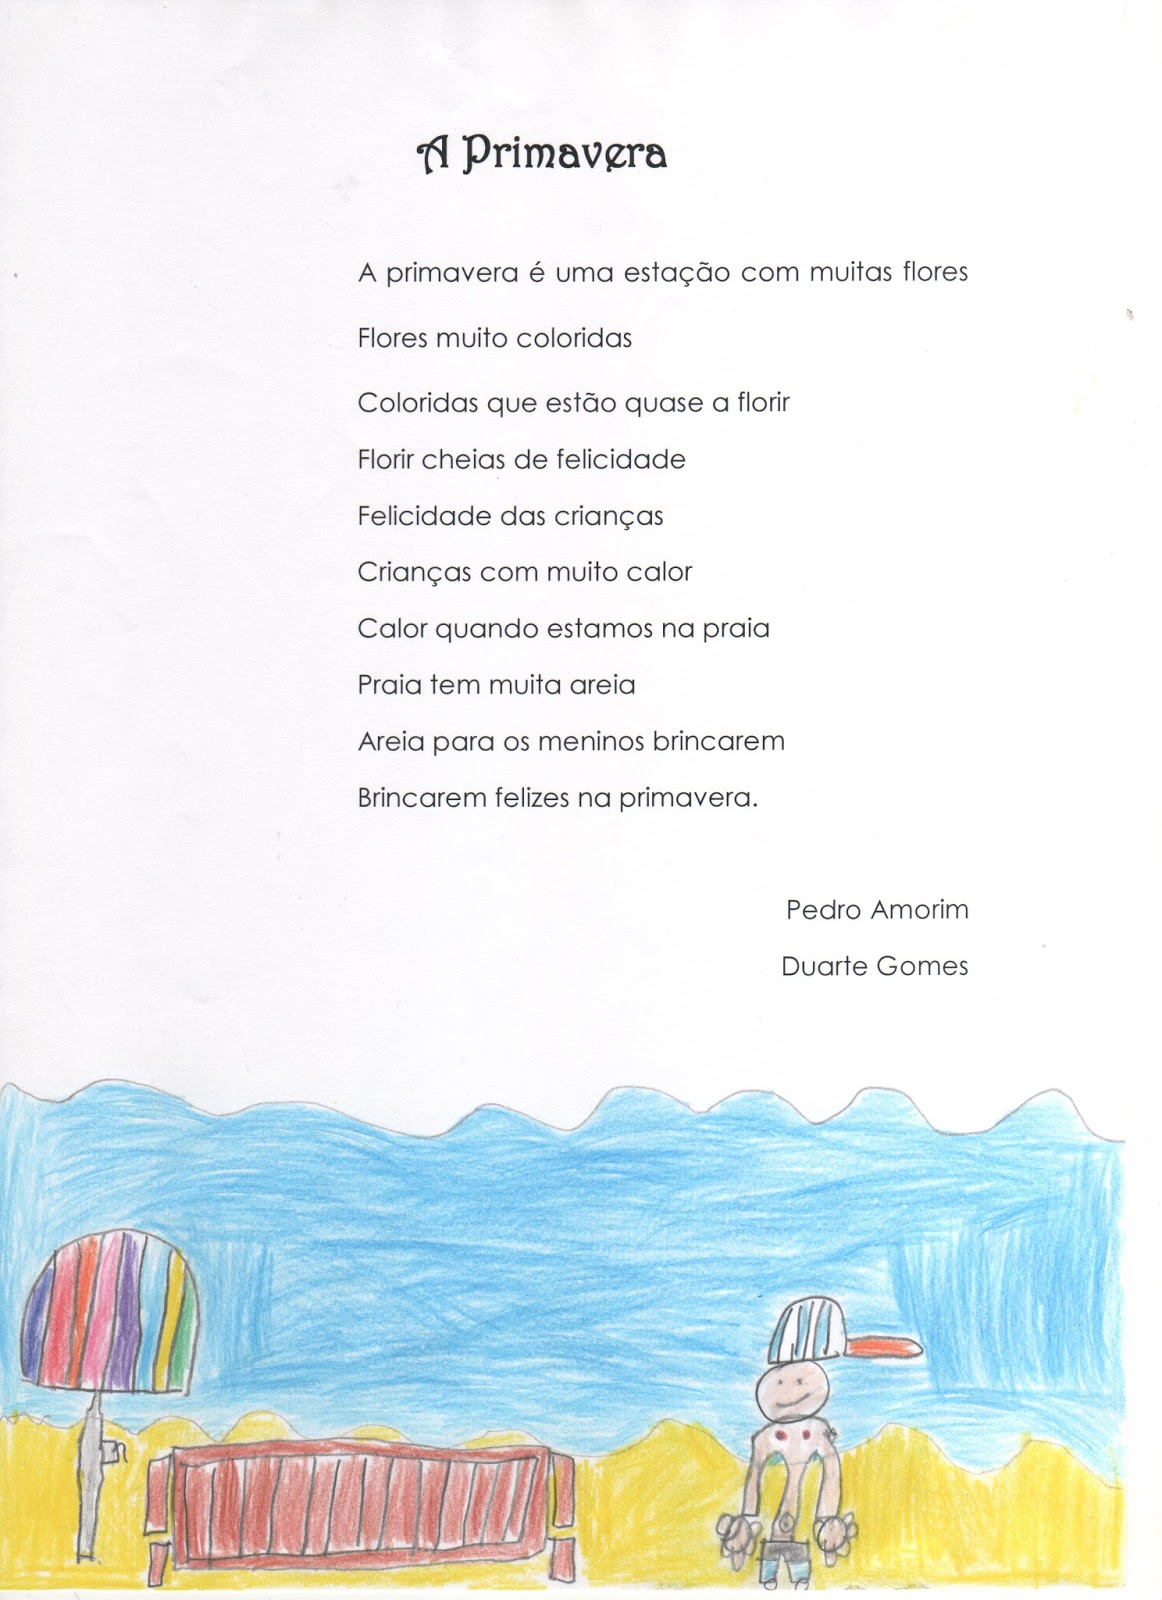 A Primavera
A primavera é uma estação com muitas flores
Flores muito coloridas
Coloridas que estão quase a florir
Florir cheias de felicidade
Felicidade das crianças
Crianças com muito calor
Calor quando estamos na praia
Praia tem muita areia
Areia para os meninos brincarem
Brincarem felizes na primavera.
Pedro Amorim
Duarte Gomes